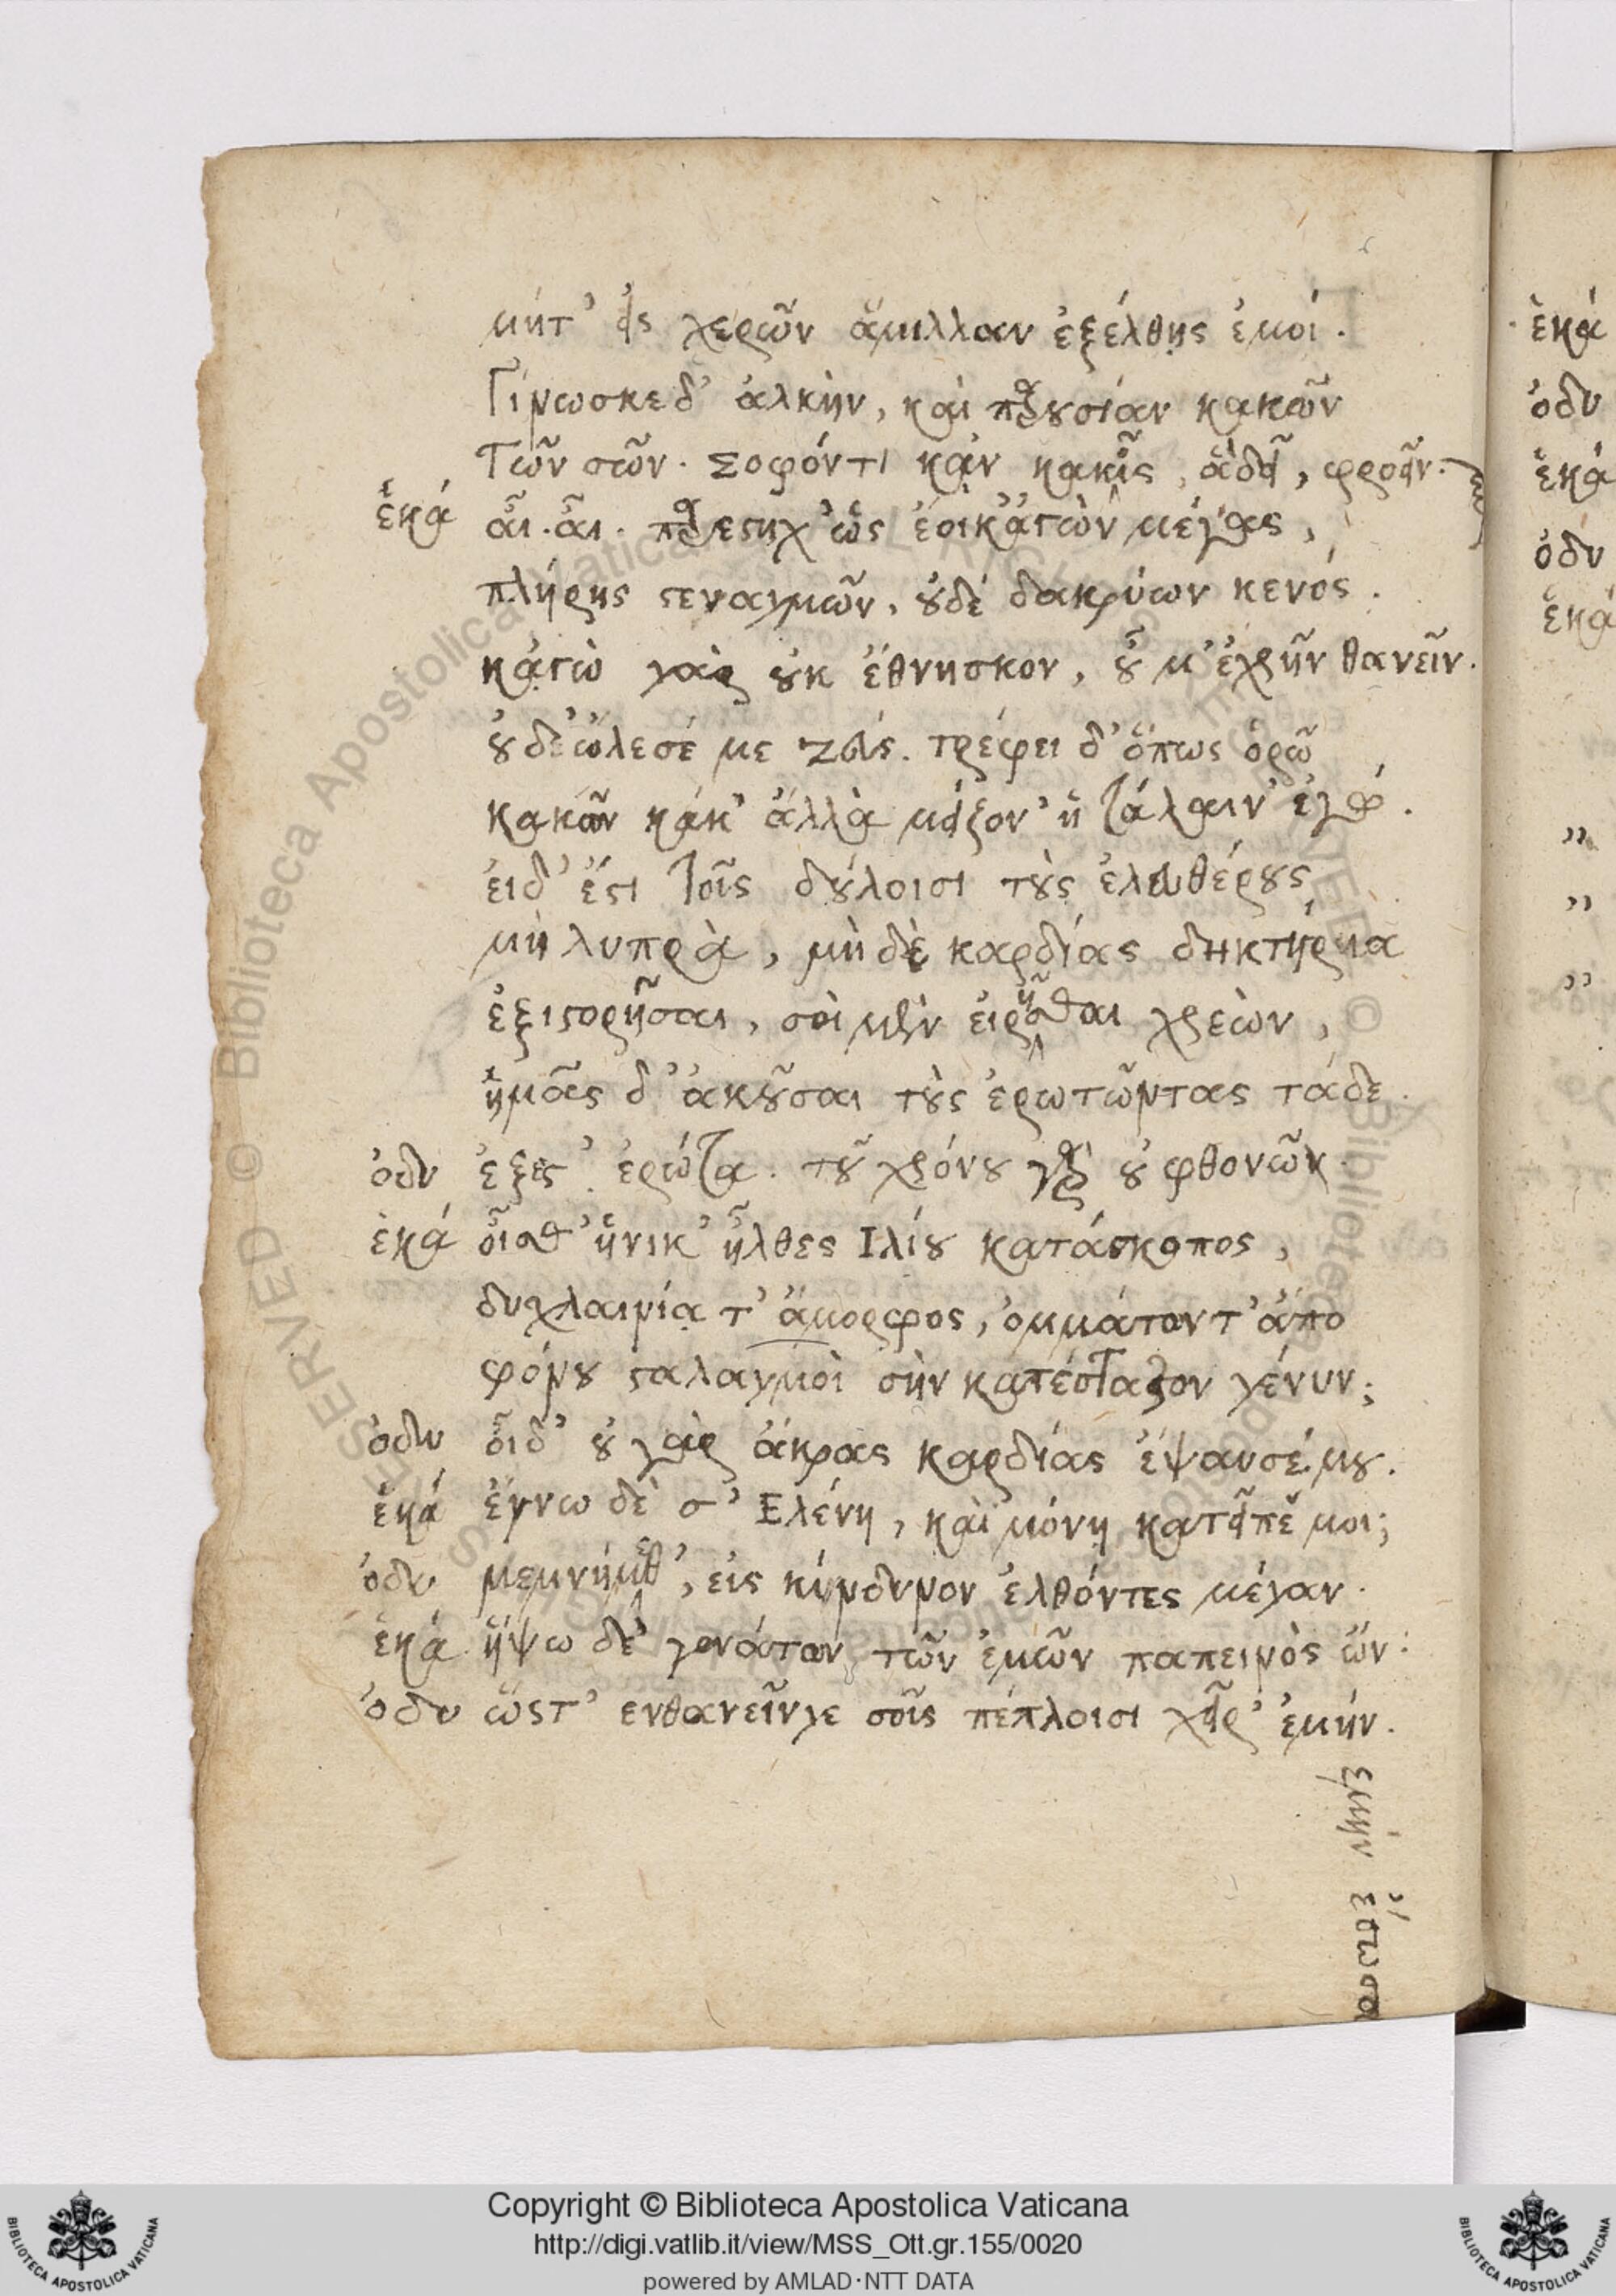 μήτ' εἰς χερῶν ἅμιλλαν ἐξέλθῃς ἐμοί.
Γίνωσκε δ' ἀλκὴν, καὶ παρουσίαν κακῶν
Τῶν σῶν. Σοφόν τι κἀν κακοῖς, ἃ δεῖ, φρονεῖν.
ἑκά αἶ. αἶ. παρέστηχ' ὡς ἔοικ' ἀγὼν μέγας,
πλήρης στεναγμῶν, οὐδὲ δακρύων κενός.
κἀγὼ γὰρ οὐκ ἔθνησκον, οὗ μ' ἐχρῆν θανεῖν.
οὐδὲ ὤλεσέ με Ζεύς. τρέφει δ' ὅπως ὁρῶ
κακῶν κάκ' ἄλλα μείζον' ἡ τάλαιν' ἐγώ.
εἰ δ' ἔστι τοῖς δούλοισι τοὺς ἐλευθέρους
μὴ λυπρὰ, μὴ δὲ καρδίας δηκτήρια
ἐξιστορῆσαι, σοὶ μὲν εἰρῆσθαι χρεὼν,
ἡμᾶς δ' ἀκοῦσαι τοὺς ἐρωτῶντας τάδε.
ὀδυ ἔξεστ'. ἐρώτα. τοῦ χρόνου γὰρ οὐ φθονῶ
ἑκά οἶσθ' ἡνίκ' ἦλθες Ἰλίου κατάσκοπος,
δυχλαινίᾳ τ' ἄμορφος, ὀμμάτων τ' ἄπο
φόνου σταλαγμοὶ σὴν κατέσταζον γένυν;
ὀδυ οἶδ' οὐ γὰρ ἄκρας καρδίας ἔψαυσέ μου.
ἑκά ἔγνω δὲ σ' Ελένη, καὶ μόνῃ κατεῖπέ μοι;
ὀδυ μεμνήμεθ', εἰς κίνδυνον ἐλθόντες μέγαν.
ἑκά ἥψω δὲ γονάτων τῶν ἐμῶν παπεινὸς ὤν:
ὀδυ ὥστ' ενθανεῖν γε σοῖς πέπλοισι χεῖρ' ἐμήν.
εμήν
ἔσωσα
ἑκά
ὀδυ
ἑκά
ὀδυ
ἑκά
Copyright © Biblioteca Apostolica Vaticana
http://digi.vatlib.it/view/MSS_Ott.gr.155/0020
powered by AMLAD·NTT DATA
BIBLIOTECA APOSTOLICA VATICANA
BIBLIOTECA APOSTOLICA VATICANA